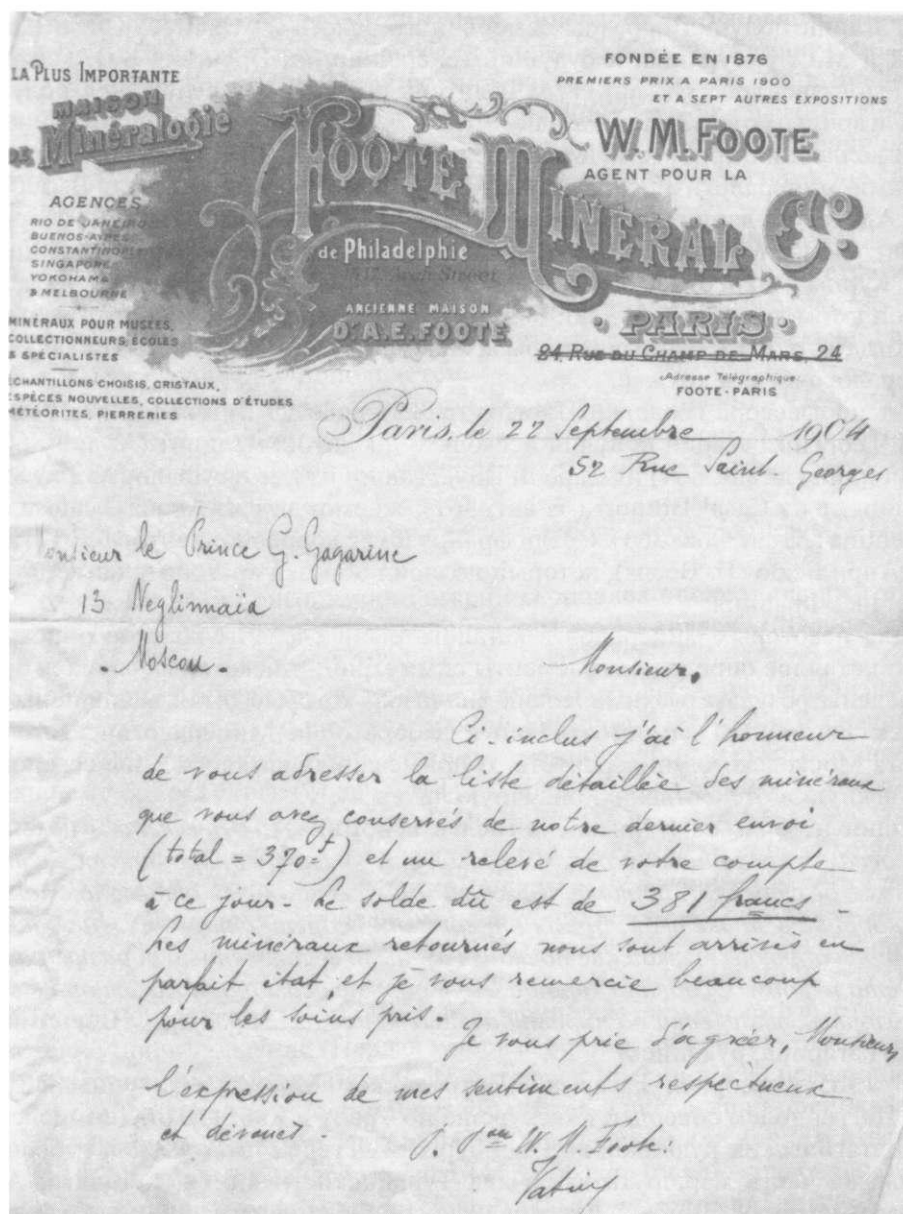 LA PLUS IMPORTANTE
MAISON
DE Minéralogie
AGENCES
RIO DE JANEIRO
BUENOS-AYRES
CONSTANTINOPLE
SINGAPORE
YOKOHAMA
& MELBOURNE
MINÉRAUX POUR MUSÉES,
COLLECTIONNEURS, ÉCOLES
& SPÉCIALISTES
ÉCHANTILLONS CHOISIS, CRISTAUX,
ESPÈCES NOUVELLES, COLLECTIONS D'ÉTUDES
MÉTÉORITES, PIERRERIES
FOOTE MINERAL Co.
de Philadelphie
Arch Street
ANCIENNE MAISON
DR A. E. FOOTE
FONDÉE EN 1876
PREMIERS PRIX A PARIS 1900
ET A SEPT AUTRES EXPOSITIONS
W. M. FOOTE
AGENT POUR LA
PARIS
24 RUE DU CHAMP DE MARS, 24
Adresse Télégraphique
FOOTE-PARIS
Paris, le 22 Septembre 1904
52 Rue Saint-Georges
Monsieur le Prince G. Gagarine
13 Neglinnaïa
- Moscou -
Monsieur,
Ci-inclus j'ai l'honneur
de vous adresser la liste détaillée des minéraux
que vous avez conservés de notre dernier envoi
(total = 370 ft) et un relevé de votre compte
à ce jour - Le solde dû est de 381 francs -
Les minéraux retournés nous sont arrivés en
parfait état, et je vous remercie beaucoup
pour les soins pris.
Je vous prie d'agréer, Monsieur,
l'expression de mes sentiments respectueux
et dévoués.
W. M. Foote